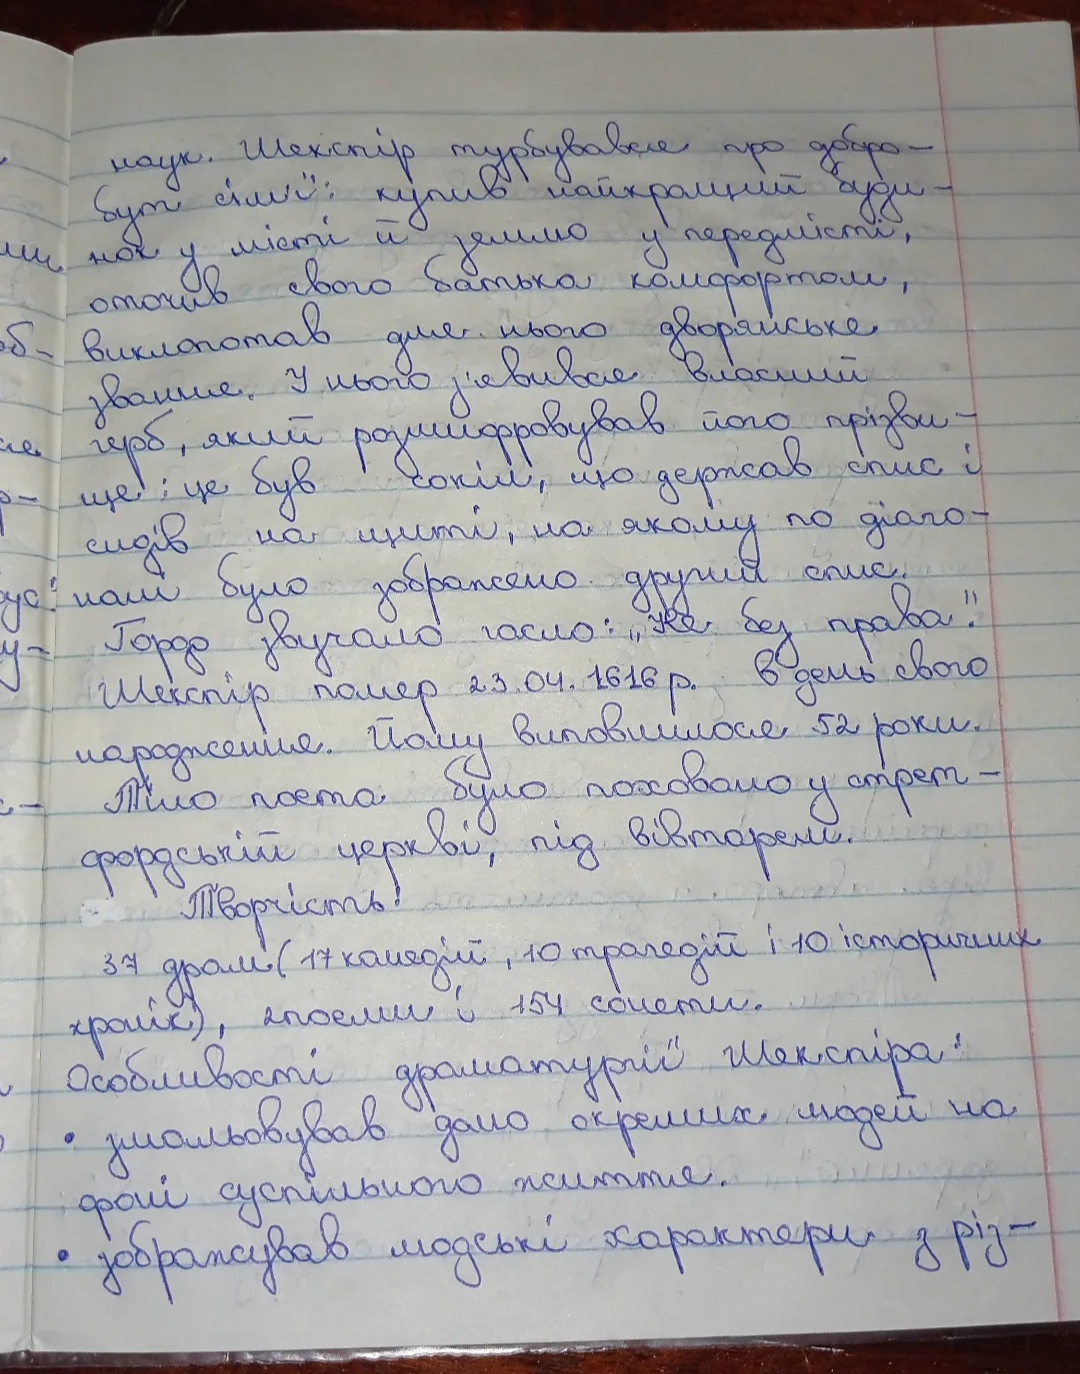 наук. Шекспір турбувався про добро-
бут сім'ї: купив найкращий буди-
нок у місті й землю у передмісті,
оточив свого батька комфортом,
виклопотав для нього дворянське
звання. У нього з'явився власний
герб, який розшифровував його прізви-
ще: це був сокіл, що держав спис і
сидів на щиті, на якому по діаго-
налі було зображено другий спис.
Гордо звучало гасло: „Не без права".
Шекспір помер 23.04.1616 р. В день свого
народження. Йому виповнилося 52 роки.
Тіло поета було поховано у стрет-
фордській церкві, під вівтарем.
Творчість:
37 драм (17 комедій, 10 трагедій і 10 історичних
хронік), 2 поеми і 154 сонети.
Особливості драматургії Шекспіра:
• змальовував долю окремих людей на
фоні суспільного життя.
• зображував людські характери з різ-